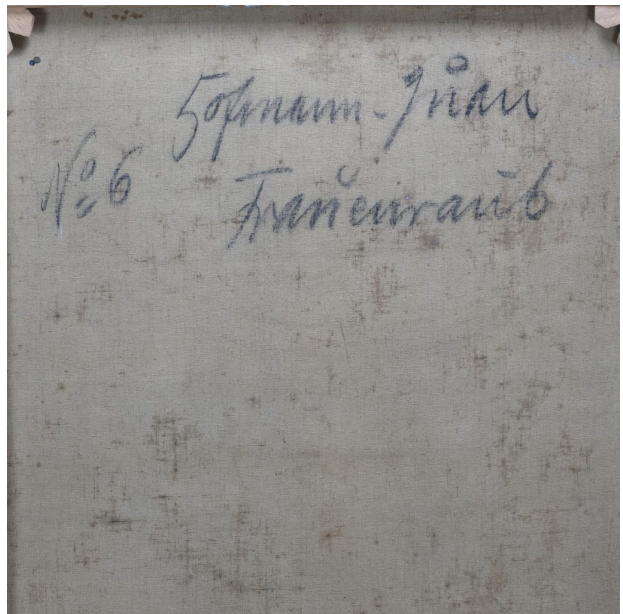 Hofmann-Juan
No 6
Frauenraub